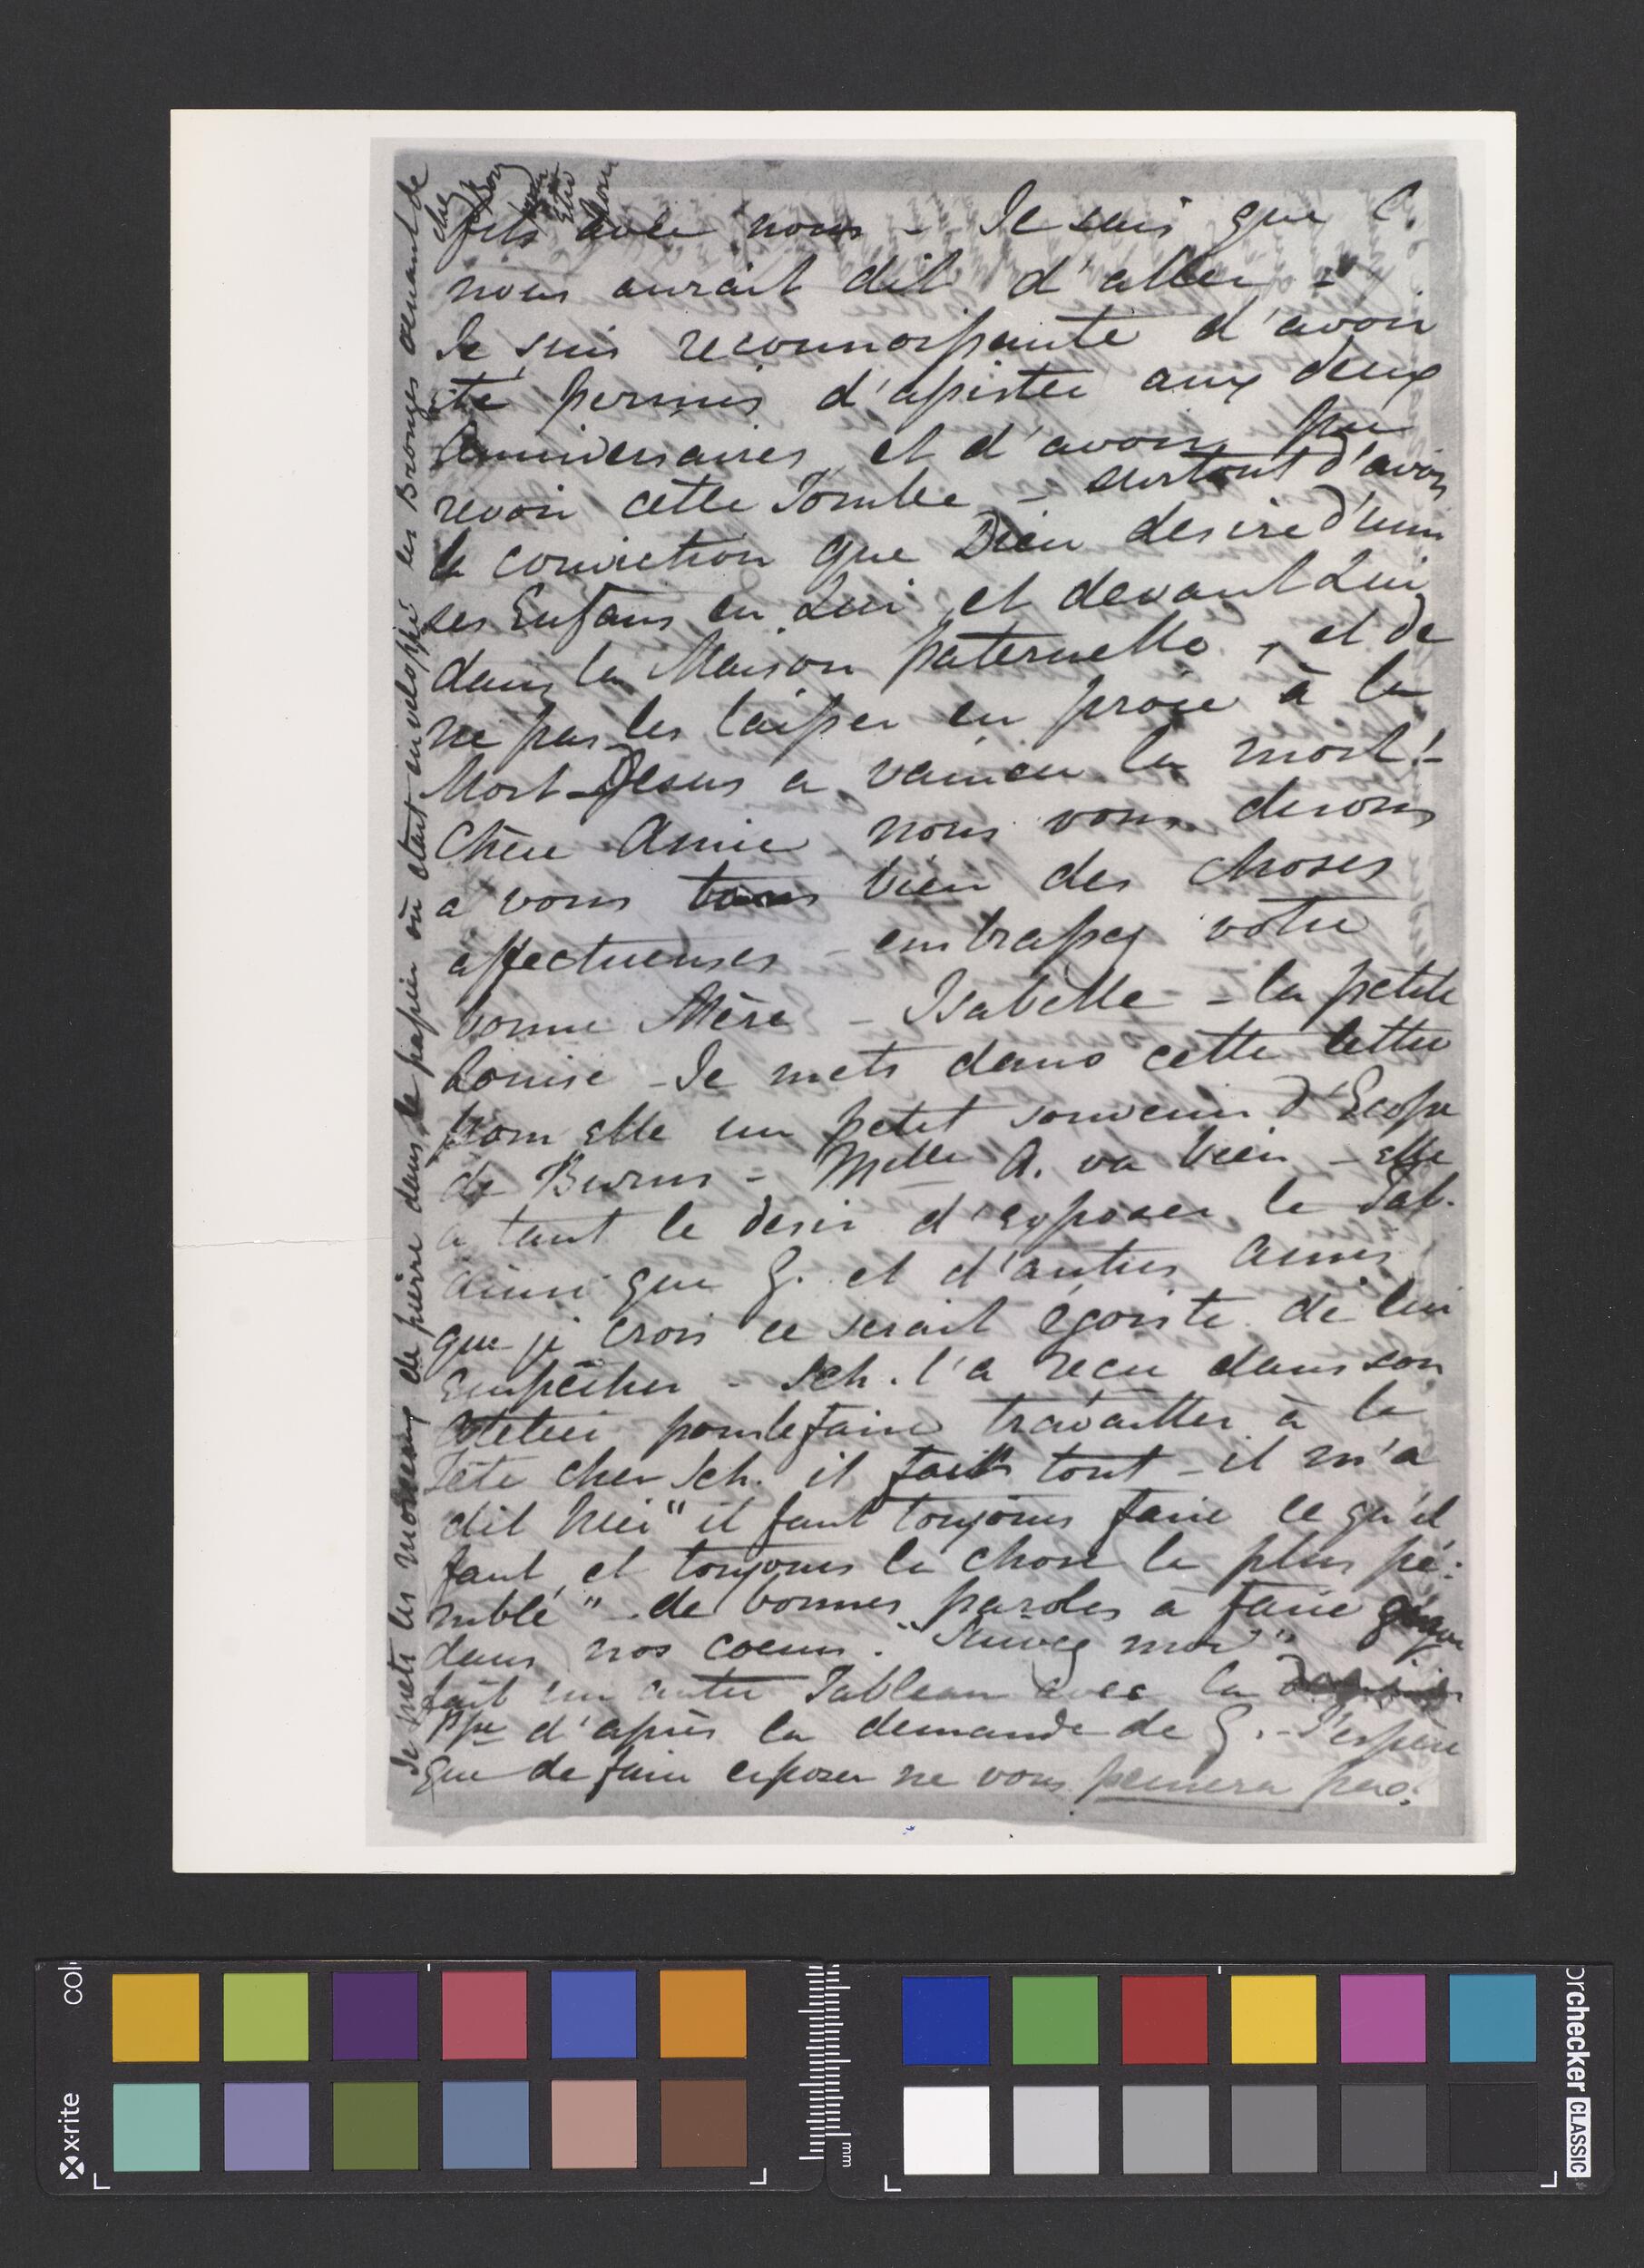 fils avec nous - Je sais que C.
nous aurait dit d'aller -
Je suis reconnaissante d'avoir
été permis d'assister aux deux
Anniversaires et d'avoir pu
revoir cette Tombe - surtout d'avoir
la conviction que Dieu desire d'unir
ses Enfans en Lui et devant Lui
dans la Maison paternelle, et de
ne pas les laisser en proie à la
Mort - Jesus a vaincu la mort! -
Chère Amie nous vous disons
a vous tous bien des choses
affectueuses - embrassez votre
bonne Mère - Isabelle - la petite
Louise - Je mets dans cette lettre
pour elle un petit souvenir d'Ecosse
de Burns - Melle A. va bien - elle
a tant le desir d'exposer le Tab.
ainsi que G. et d'autres amis
que je crois ce serait égoiste de lui
empêcher - Sch. l'a reçu dans son
Atelier pour le faire travailler à la
Tête cher Sch. il fait tout - il m'a
dit hier "il faut toujours faire ce qu'il
faut, et toujours la chose la plus pé-
nible" - de bonnes paroles a faire
dans nos coeurs. "Sauvez moi"
fait un autre Tableau avec la
Ppe d'après la demande de G. - J'espère
que de faire exposer ne vous peinera pas.
Je mets les morceaux de pierre dans le papier où etait enveloppé les Bronzes venant de
chez